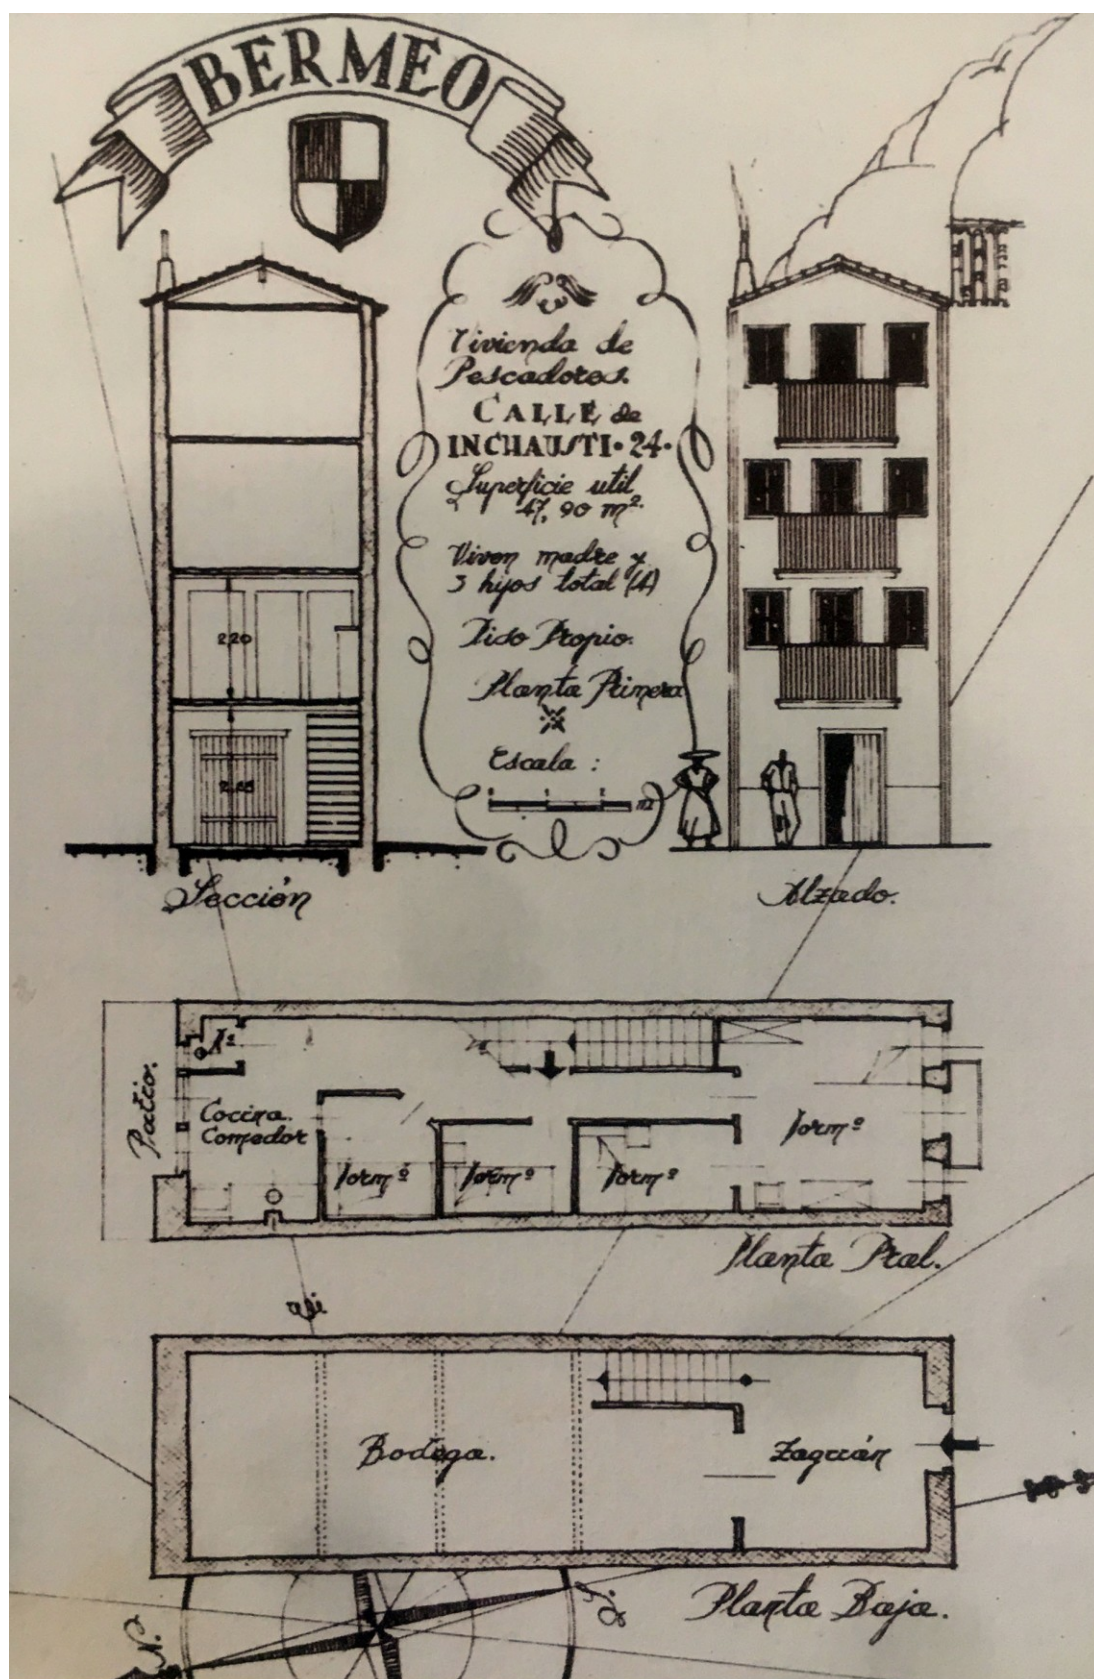 BERMEO
Vivienda de
Pescadores.
CALLE de
INCHAUSTI·24·
Superficie util
47,90 m².
Viven madre y
3 hijos total (4)
Piso Propio.
Planta Primera
Escala :
m
2,20
Sección
Alzado.
Patio.
Cocina.
Comedor
Dormº
Dormº
Dormº
Dormº
Planta Pral.
Bodega.
Zaguán
Planta Baja.
N.